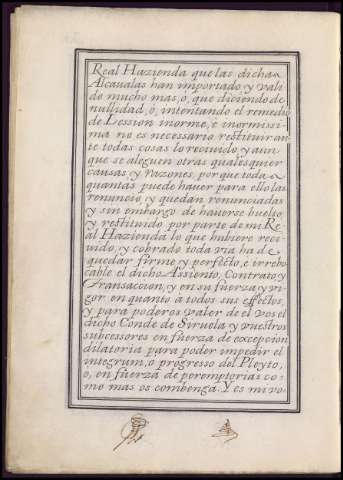 Real Hazienda que las dichas
Alcaualas han importado, y vali
do mucho mas, ó, que diciendo de
nullidad, ó, intentando el remedio
de Lession inorme, è inormissi-
ma no es necessario restituir an
te todas cosas lo reciuido, y aun
que se aleguen otras qualesquier
causas, y razones, por que todas
quantas puede hauer para ello las
renuncio, y quedan renunciadas
y sin embargo de hauerse buelto,
y restituido por parte de mi Re
al Hazienda lo que hubiere reci-
uido, y cobrado toda via ha de
quedar firme y perfecto, è irrebo
cable el dicho Assiento, Contrato y
Transaccion, y en su fuerza y vi-
gor en quanto a todos sus effectos,
y para poderos valer de el vos el
dicho Conde de Siruela y vuestros
subcessores en fuerza de excepcion
dilatoria para poder impedir el
integrum, ó progresso del Pleyto,
ò, en fuerza de peremptorias co-
mo mas os combenga. Y es mi vo-